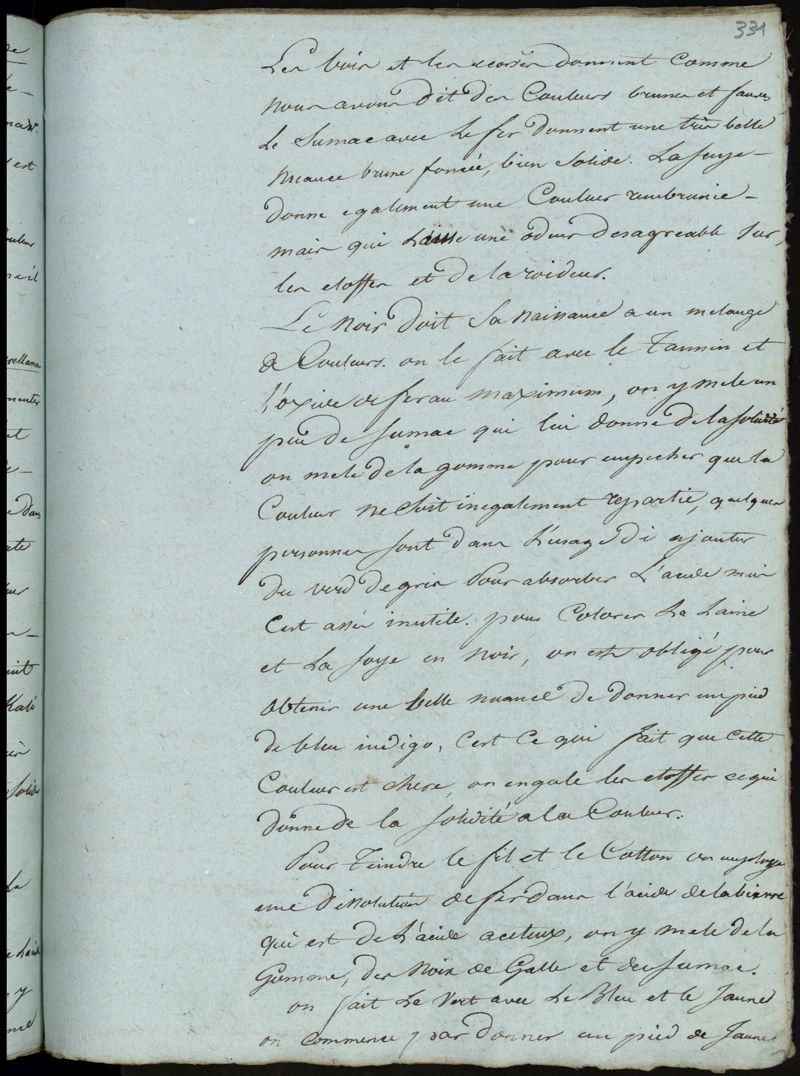 331
Les bois et les ecorses donnent comme
nous avons dit des Couleurs brunes et fauves
Le Sumac avec Le fer donnent une très belle
nuance brune foncée, bien Solide. La Suye
donne egalement une Couleur rembrunie
mais qui Laisse une odeur desagreable Sur,
les etoffes et de la roideur.
Le Noir doit Sa Naissance a un melange
de Couleurs. on le fait avec le Tannin et
l'oxide de fer au maximum, on y mele un
peu de Sumac qui lui donne de la solidité
on mele de la gomme pour empecher que la
Couleur ne Soit inegalement repartie, quelques
personnes sont dans L'usage d'i ajouter
du verd de gris Pour absorber L'acide mais
C'est assés inutile. pour Colorer La Laine
et La Soye en noir, on est obligé pour
obtenir une belle nuance de donner un pied
de bleu indigo, C'est Ce qui fait que Cette
Couleur est chere, on engale les etoffes ce qui
donne de la solidité a la Couleur.
Pour Teindre le fil et le Cotton on employe
une dissolution de fer dans l'acide de la bierre
qui est de L'acide aceteux, on y mele de la
Gomme, des Noix de Galle et du Sumac.
on fait Le Vert avec Le Bleu et le Jaune
on Commence par donner un pied de Jaune